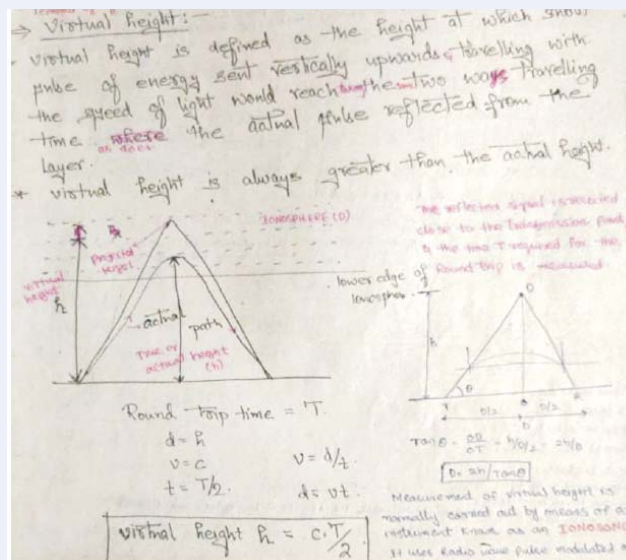 ⇒ Virtual height:-
virtual height is defined as the height at which short
pulse of energy sent vertically upwards & travelling with
the speed of light would reach the two ways Travelling
time where the actual pulse reflected from the
as does
layer.
* virtual height is always greater than the actual height.
IONOSPHERE (D)
Projected
virtual
height
h
actual path
True or
actual height
(h)
The reflected signal is received
close to the Transmission Point
& the time T required for the
Round trip is measured.
lower edge of
Ionosphere
O
h
θ
T
D/2
D/2
D
Tanθ = OD/OT = h/D/2 = 2h/D
D = 2h/Tanθ
Round trip time = T.
d = h
v = c
t = T/2.
v = d/t
d = vt.
virtual height h = c.T/2
Measurement of virtual height is
normally carried out by means of an
instrument known as an IONOSONDE
It uses Radio wave Pulse modulated